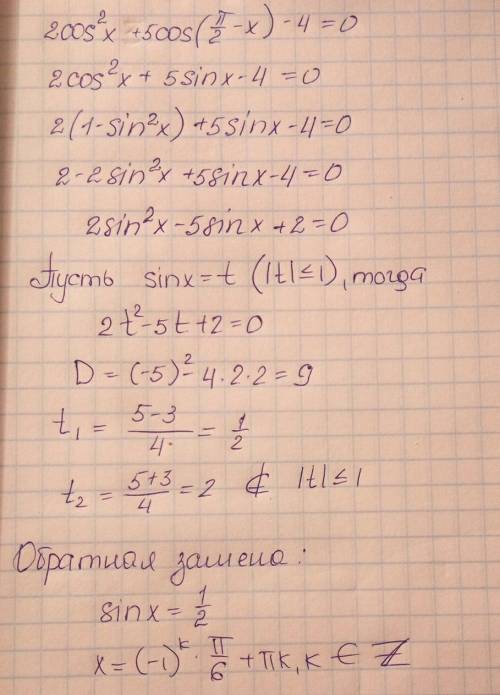 2cos²x + 5cos(π/2 - x) - 4 = 0
2cos²x + 5sinx - 4 = 0
2(1 - sin²x) + 5sinx - 4 = 0
2 - 2sin²x + 5sinx - 4 = 0
2sin²x - 5sinx + 2 = 0
Пусть sinx = t (|t| ≤ 1), тогда
2t² - 5t + 2 = 0
D = (-5)² - 4·2·2 = 9
t₁ = (5-3)/4 = 1/2
t₂ = (5+3)/4 = 2 ⊄ |t| ≤ 1
Обратная замена:
sinx = 1/2
x = (-1)ᵏ · π/6 + πk, k ∈ Z